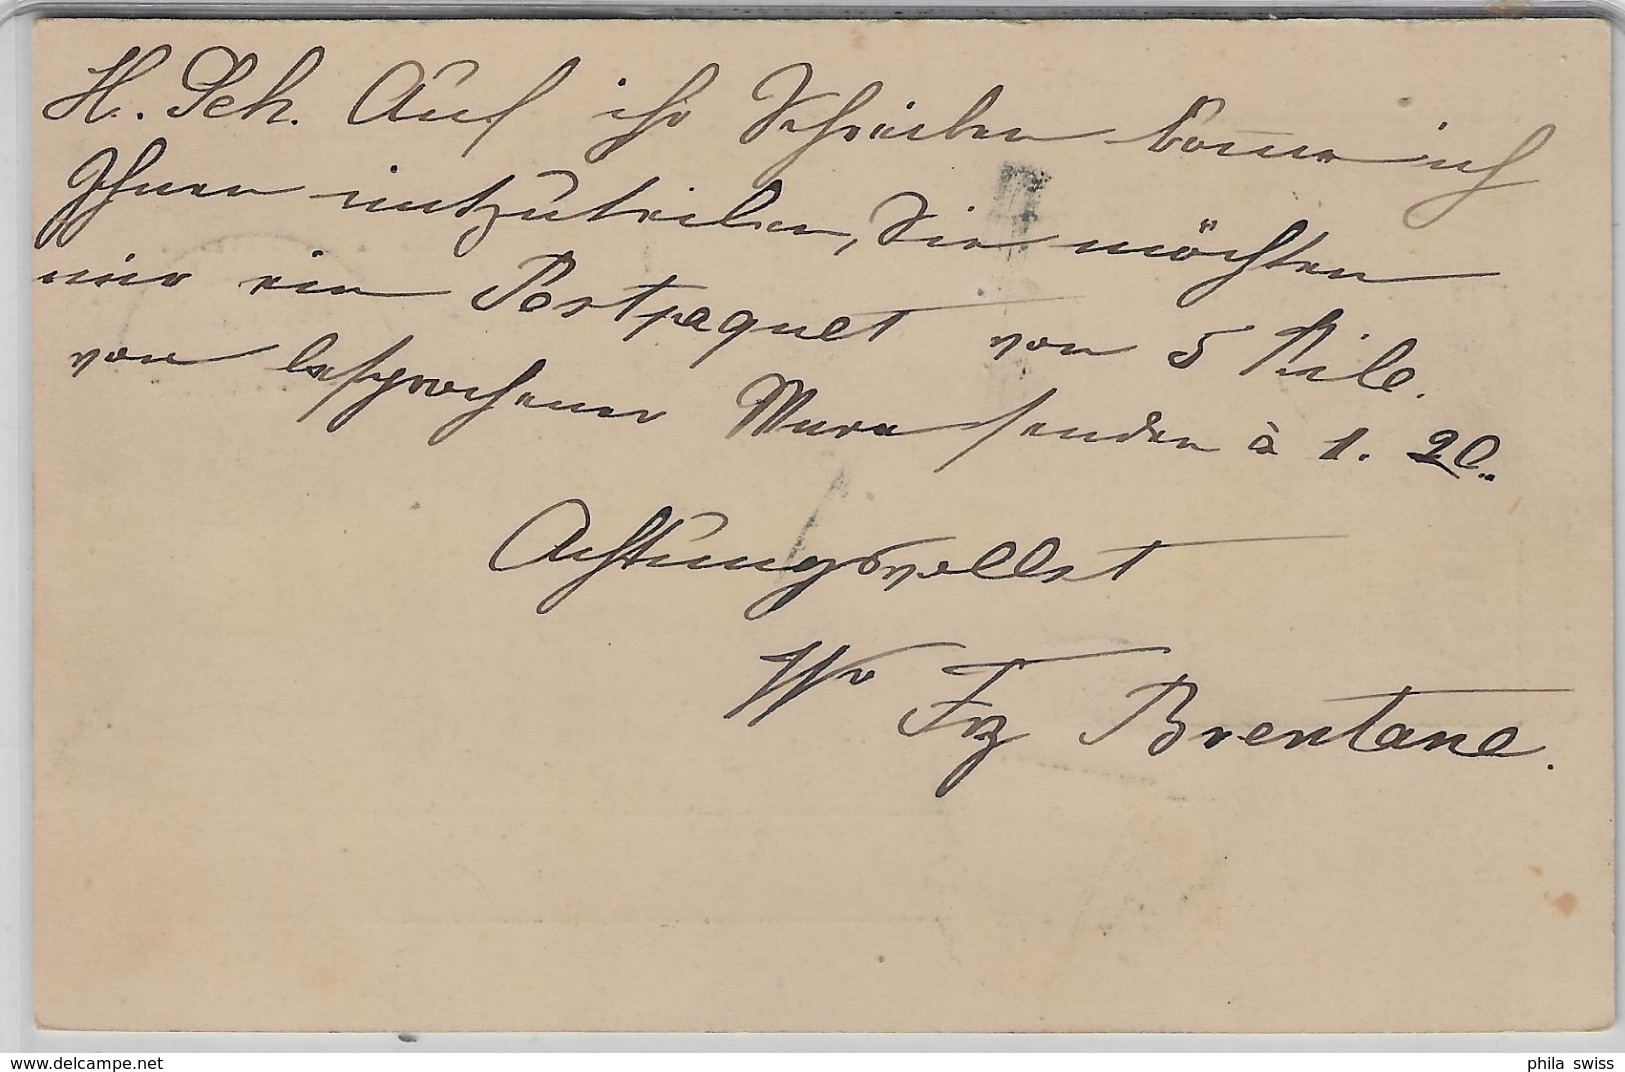 H. Sch. Auf ihr Schreiben komme ich
Ihnen mitzuteilen, Sie möchten
mir ein Postpaquet von 5 Kilo.
von besprochener Ware senden à 1. 20.
Achtungsvollst
Wr Frz Brentano.
delcampe.net
phila_swiss